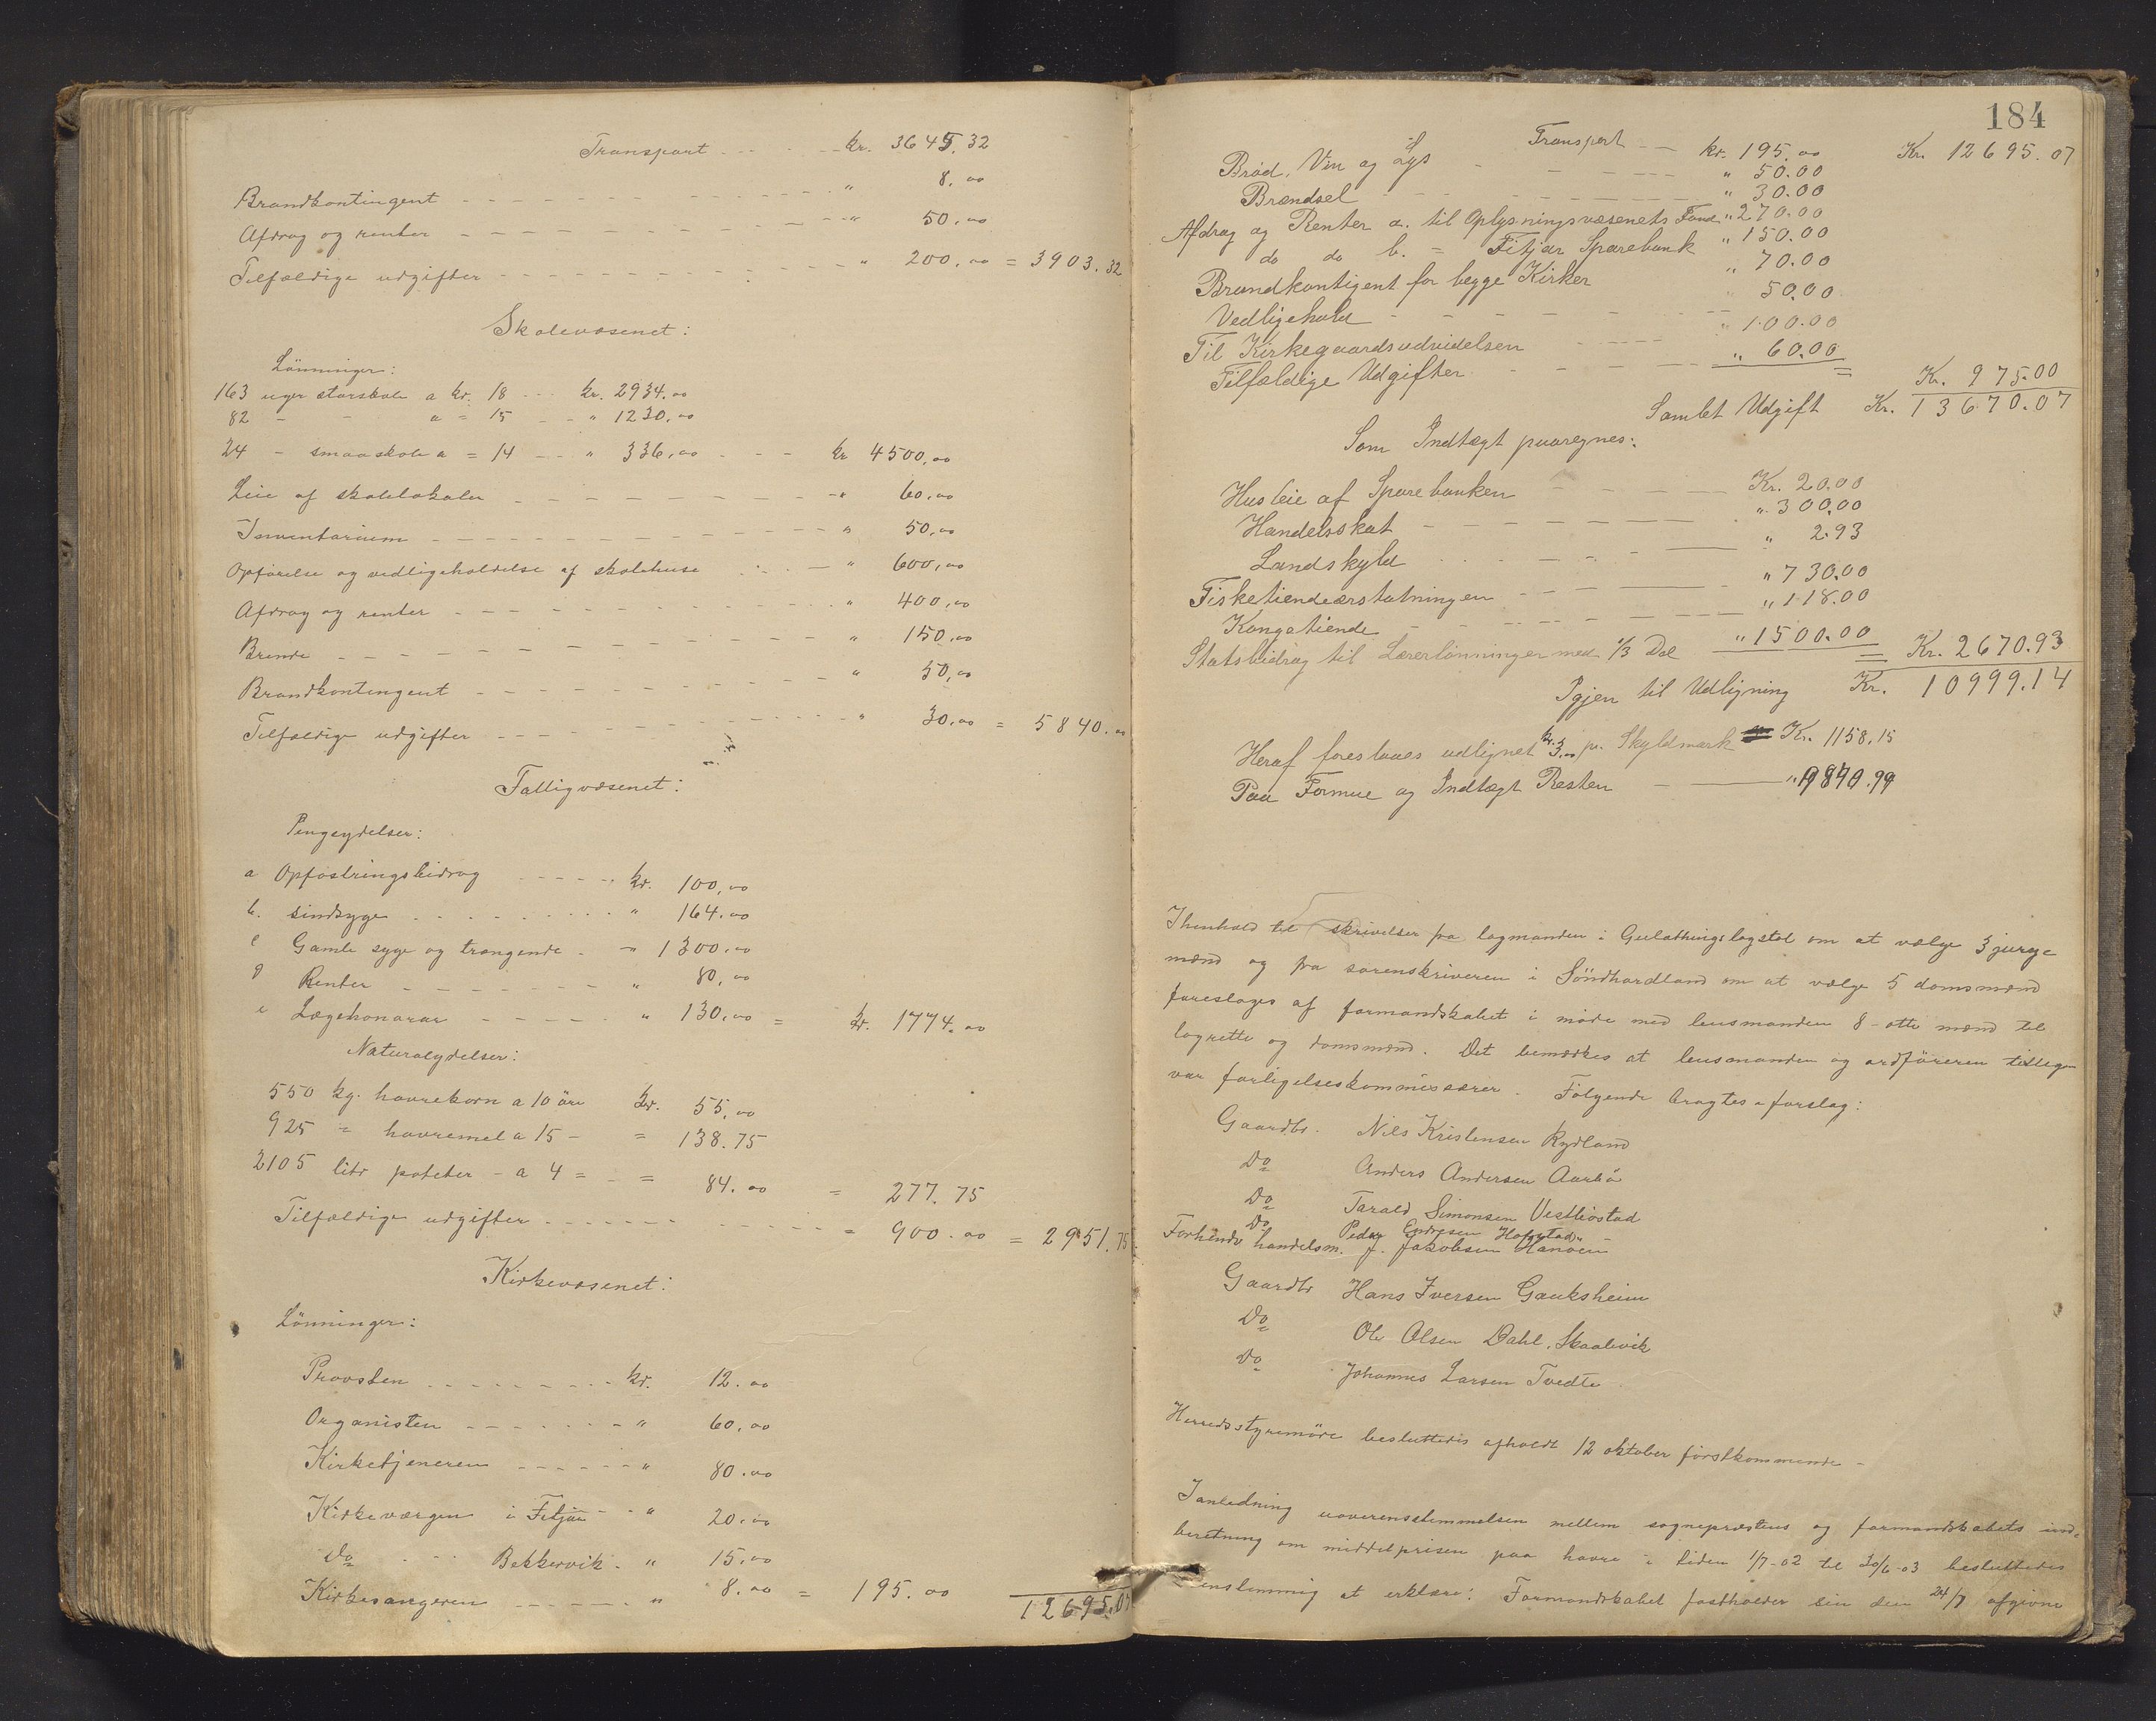 Transport - - - - kr. 3645.32
Brandkontingent - - - - - " 8.00
Afdrag og renter - - - - - " 50.00
Tilfældige udgifter - - - - - " 200.00 = 3903.32
Skolevæsenet:
Lønninger:
163 uger storskole a kr. 18 - - kr. 2934.00
82 - - a = 15 - - " 1230.00
24 - smaaskole a = 14 - - " 336.00 - - - kr 4500.00
Leie af skolelokaler - - - - - " 60.00
Inventarium - - - - - " 50.00
Opførelse og vedligeholdelse af skolehuse - - - " 600.00
Afdrag og renter - - - - - " 400.00
Brende - - - - - " 150.00
Brandkontingent - - - - - " 50.00
Tilfældige udgifter - - - - - " 30.00 = 5840.00
Fattigvæsenet:
Pengeydelser:
a Opfostringsbidrag - - - - kr. 100.00
b. sindsyge - - - - " 164.00
c Gamle syge og trængende - " 1300.00
d Renter - - - - " 80.00
e Lægehonorar - - - - " 130.00 = kr. 1774.00
Naturalydelser:
550 kg. havrekorn a 10 öre kr. 55.00
925 = havremel a 15 - = 138.75
2105 litr poteter - a 4 = - = 84.00 = 277.75
Tilfældige udgifter - - - - - = 900.00 = 2951.75
Kirkevæsenet:
Lønninger:
Provsten - - - - kr. 12.00
Organisten - - - - " 60.00
Kirketjeneren - - - - " 80.00
Kirkeværgen i Fitjar - - " 20.00
Do - - Bekkervik - " 15.00
Kirkesangeren - - - - " 8.00 = 195.00 12695.07
184
Transport - - kr. 195.00 Kr. 12695.07
Brød, Vin og Lys - - - - - " 50.00
Brændsel - - - - - " 30.00
Afdrag og Renter a. til Oplysningsvæsenets Fond " 270.00
do do b. = Fitjar Sparebank " 150.00
Brandkontigent for begge Kirker " 70.00
Vedligehold - - - - - " 50.00
Til Kirkegaardsudvidelsen - - - " 100.00
Tilfældige Udgifter - - - - " 60.00 = Kr. 975.00
Samlet Udgift Kr. 13670.07
Som Indtægt paaregnes:
Husleie af Sparebanken - - - Kr. 20.00
Handelsskat - - - - " 300.00
Landskyld - - - - " 2.93
Fisketiendeerstatningen - - - " 730.00
Kongetiende - - - - " 118.00
Statsbidrag til Lærerlønninger med 1/3 Del " 1500.00 = Kr. 2670.93
Igjen til Udligning Kr. 10999.14
Heraf foreslaaes udlignet kr. 3.00 pr. Skyldmark Kr. 1158.15
Paa Formue og Indtægt Resten - - " 9840.99
Ihenhold til skrivelser fra lagmanden i Gulathingslagstol om at vælge 3 jurye
mænd og fra sorenskriveren i Söndhordland om at vælge 5 domsmænd
foresloges af formandskabet i møde med lensmanden 8 - otte mænd til
lagrette og domsmænd. Det bemærkes at lensmanden og ordføreren tillige
var forligelseskommissærer. Følgende bragtes i forslag:
Gaardbr. Nils Kristensen Rydland
Do Anders Andersen Aarbø
Do Tarald Simonsen Vestbøstad
Do Peder Endresen Hafstad
Forhenv handelsm. J. Jakobsen Hanøen
Gaardbr Hans Iversen Gauksheim
Do Ole Olsen Dahl, Skaalevik
Do Johannes Larsen Tvedte
Herredsstyremøde besluttedes afholdt 12 oktober førstkommende -
I anledning uoverensstemmelsen mellem sogneprestens og formandskabets ind-
beretning om middelprisen paa havre i tiden 1/7-02 til 30/6-03 besluttedes
enstemmig at erklære: Formandskabet fastholder sin den 24/7 afgivne